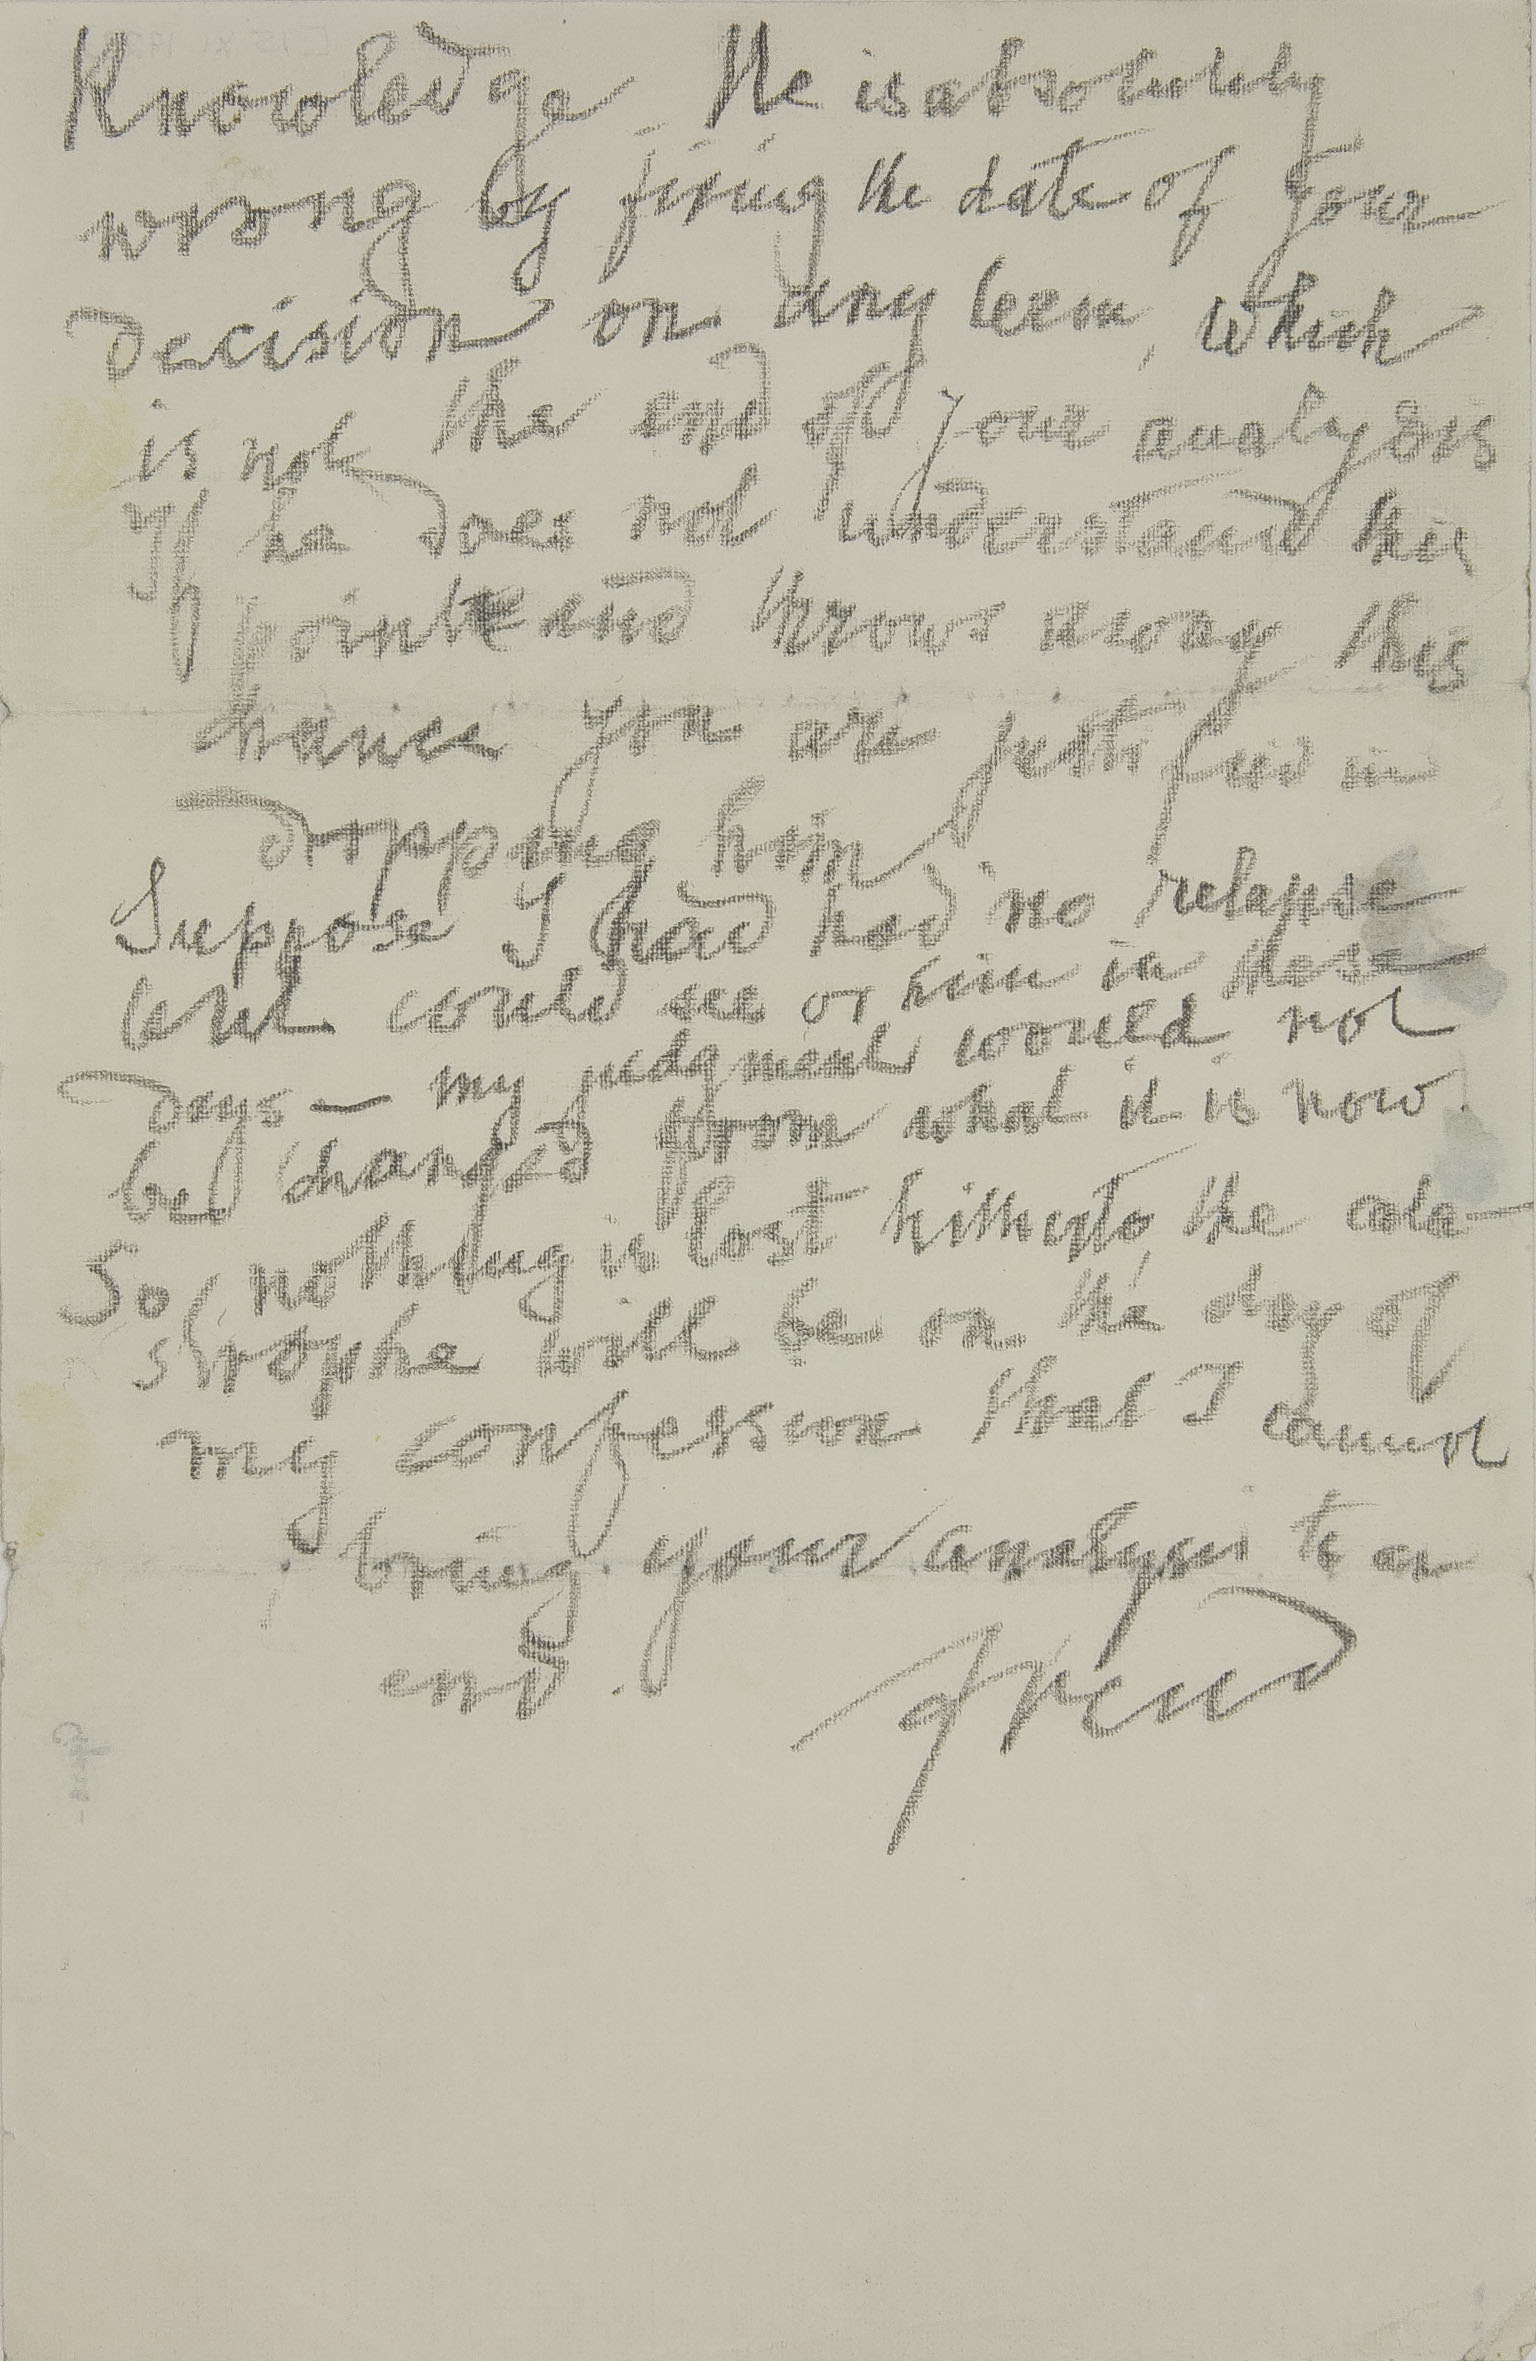 Knowledge. He is absolutely
wrong by fixing the date of your
Decision on any term, which
is not the end of your analysis
If he does not understand this
point and throws away this
chance you are justified in
dropping him
Suppose I had had no relapse
and could see him in these
Days — my judgment would not
be changed from what it is now.
So nothing is lost hitherto, the cata-
strophe will be on the day of
my confession that I cannot
bring your analysis to an
end.
Freud